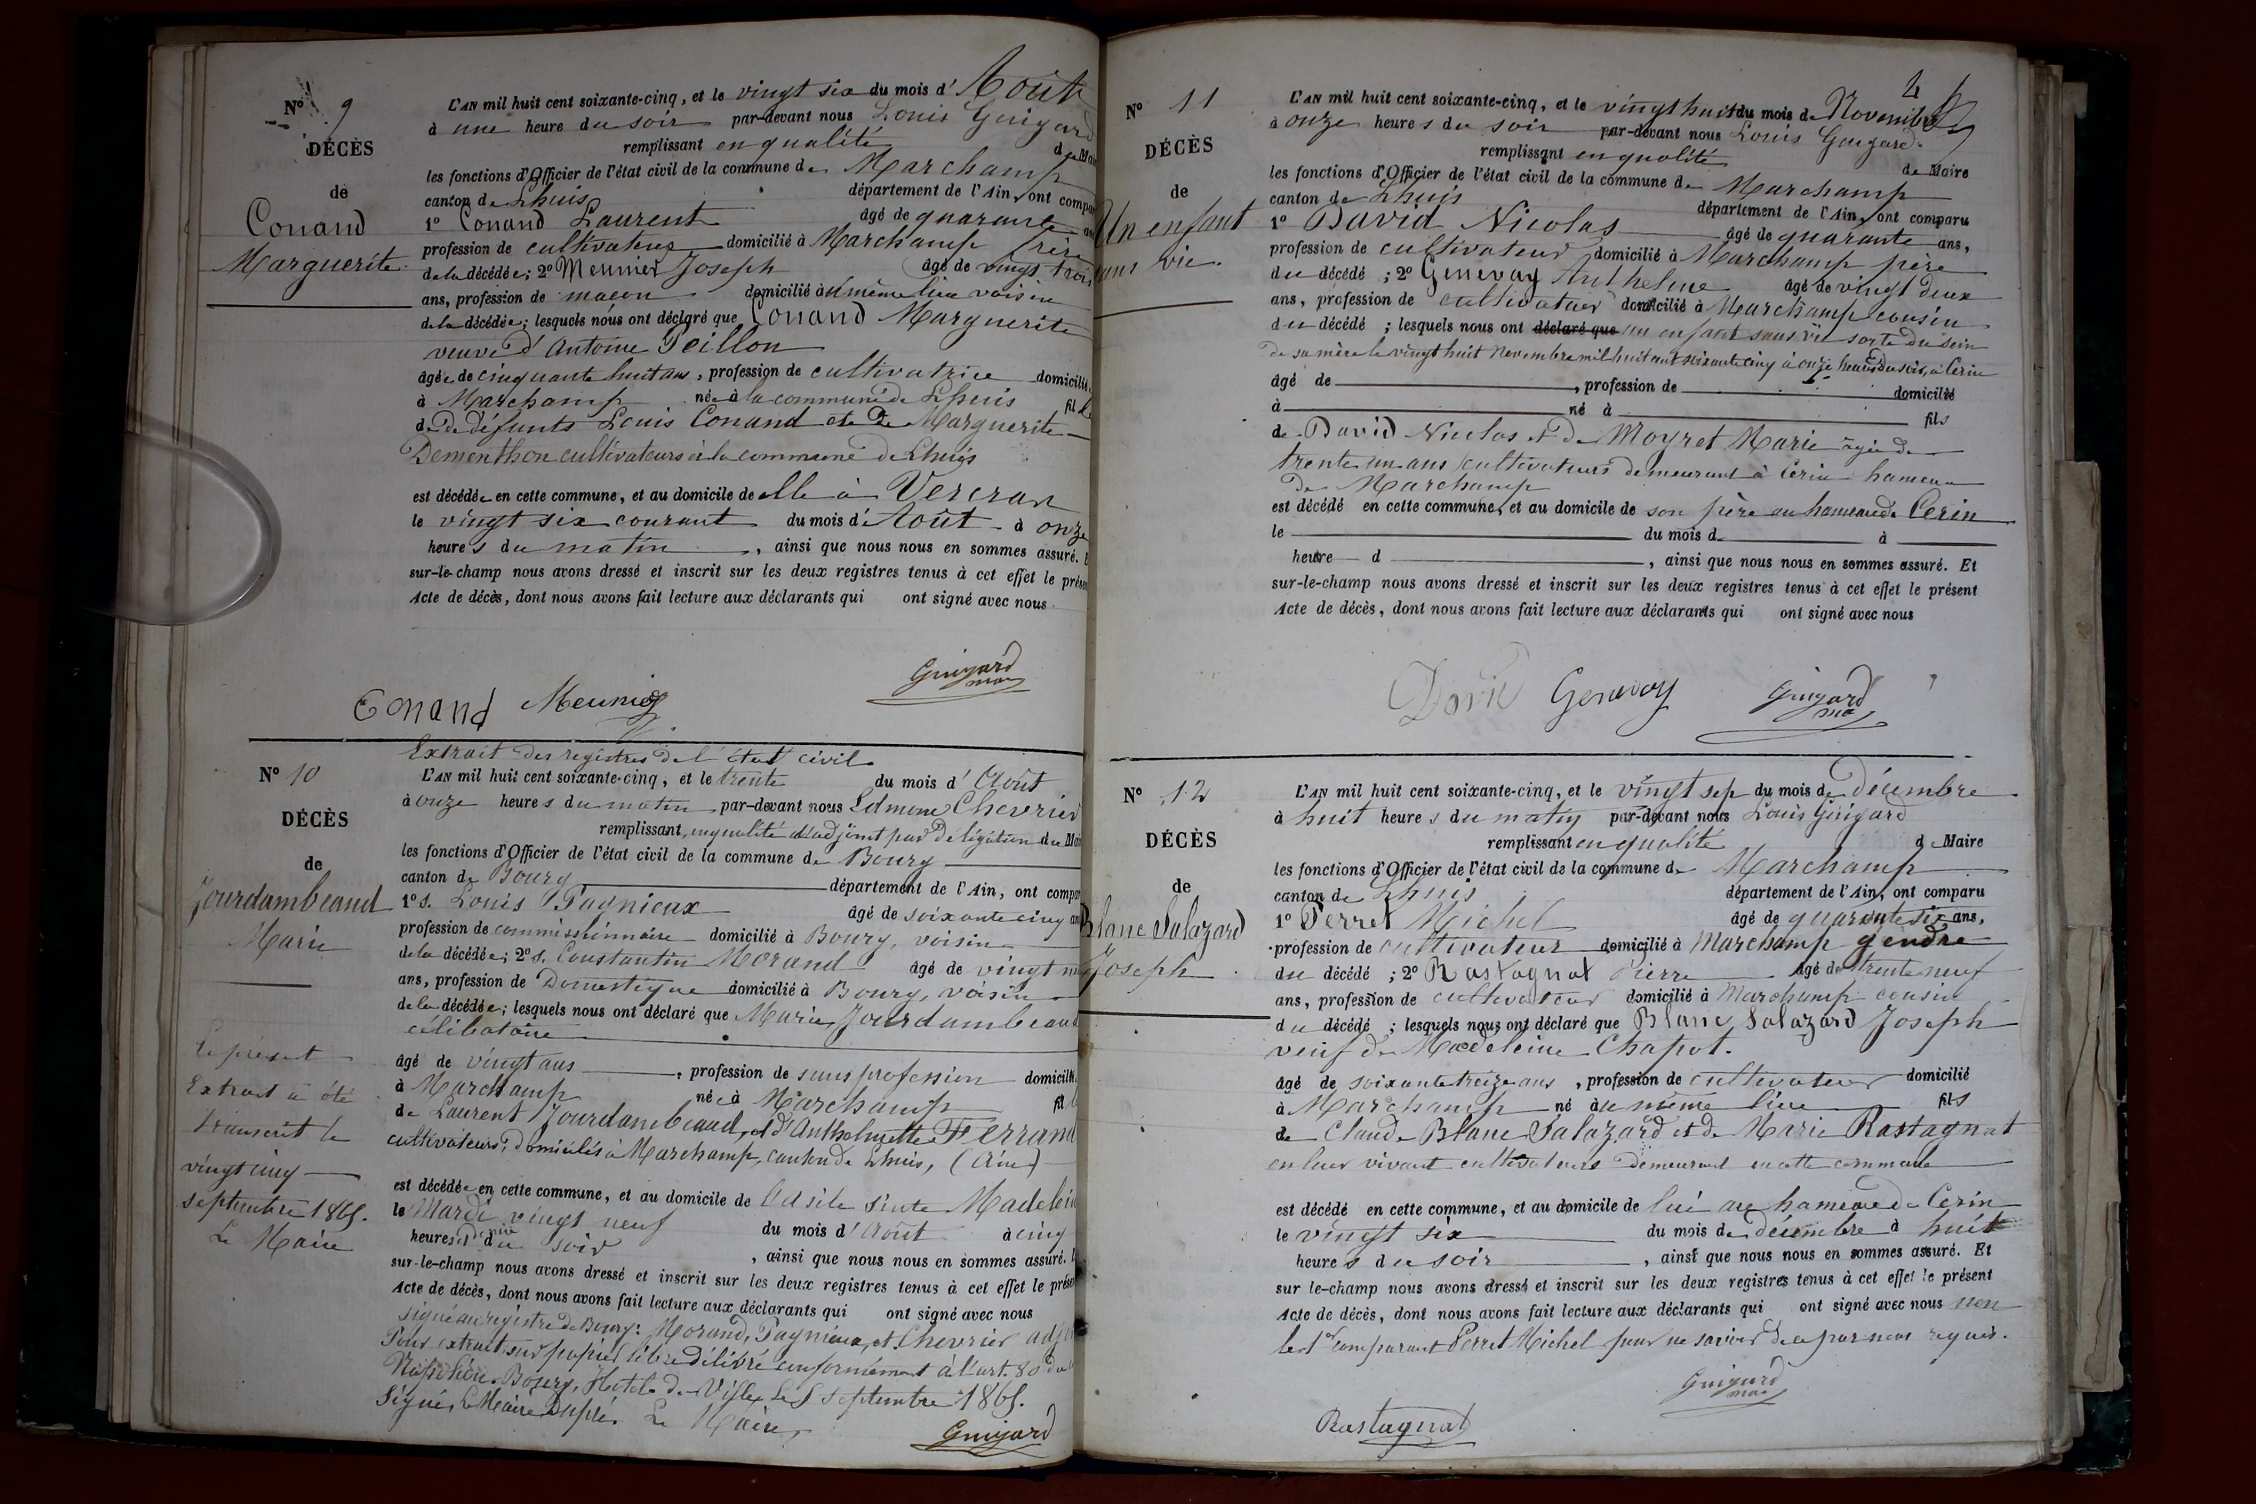 N° 9
DÉCÈS
de
Conand
Marguerite
L'AN mil huit cent soixante-cinq, et le vingt six du mois d' Août
à une heure du soir par-devant nous Louis Guigard
remplissant en qualité de Mai
les fonctions d'Officier de l'état civil de la commune de Marchamp
canton de Lhuis département de l'Ain, ont compa
1° Conand Laurent âgé de quarante an
profession de cultivateur domicilié à Marchamp frère
de la décédée; 2° Meunier Joseph âgé de vingt trois
ans, profession de maçon domicilié au même lieu voisin
de la décédée; lesquels nous ont déclaré que Conand Marguerite
veuve d'Antoine Peillon
âgée de cinquante huit ans, profession de cultivatrice domicilié
à Marchamp née à la commune de Lhuis fille
de défunts Louis Conand et de Marguerite
Dementhon cultivateurs à la commune de Lhuis
est décédée en cette commune, et au domicile de elle à Vercran
le vingt six courant du mois d'Août à onze
heures du matin, ainsi que nous nous en sommes assuré. E
sur-le-champ nous avons dressé et inscrit sur les deux registres tenus à cet effet le présen
Acte de décès, dont nous avons fait lecture aux déclarants qui ont signé avec nous
Conand Meunier Guigard
N° 10
DÉCÈS
de
Jourdambeaud
Marie
Le présent
Extrait a été
transcrit le
vingt cinq
septembre 1865.
Le Maire
Extrait des registres de l'état civil
L'AN mil huit cent soixante-cinq, et le trente du mois d' Août
à onze heures du matin par-devant nous Edmond Chevrier
remplissant, en qualité d'adjoint par délégation du Mai
les fonctions d'Officier de l'état civil de la commune de Bourg
canton de Bourg département de l'Ain, ont compar
1° s. Louis Pagnieux âgé de soixante cinq an
profession de commissionnaire domicilié à Bourg, voisin
de la décédée; 2° s. Constantin Morand âgé de vingt
ans, profession de Domestique domicilié à Bourg, voisin
de la décédée; lesquels nous ont déclaré que Marie Jourdambeaud
célibataire
âgé de vingt ans, profession de sans profession domicilié
à Marchamp née à Marchamp fil
de Laurent Jourdambeaud, et d'Anthelmette Ferrand
cultivateurs, domiciliés à Marchamp, canton de Lhuis, (Ain)
est décédée en cette commune, et au domicile de l'asile Sinte Madelein
le Mardi vingt neuf du mois d'Août à cinq
heures et demie du soir, ainsi que nous nous en sommes assuré. E
sur-le-champ nous avons dressé et inscrit sur les deux registres tenus à cet effet le présen
Acte de décès, dont nous avons fait lecture aux déclarants qui ont signé avec nous
signé au registre de Bourg: Morand, Pagnieux, et Chevrier adj
Pour extrait sur papier libre délivré conformément à l'art. 80 du
Napoléon. Bourg, Hotel de Ville, le 8 septembre 1865.
Signé, Le Maire Dupré. Le Maire,
Guigard
N° 11
DÉCÈS
de
Un enfant
sans vie.
L'AN mil huit cent soixante-cinq, et le vingt huit du mois de Novembre
à onze heures du soir par-devant nous Louis Guigard
remplissant en qualité de Maire
les fonctions d'Officier de l'état civil de la commune de Marchamp
canton de Lhuis département de l'Ain, ont comparu
1° David Nicolas âgé de quarante ans,
profession de cultivateur domicilié à Marchamp père
du décédé; 2° Genevay Anthelme âgé de vingt deux
ans, profession de cultivateur domicilié à Marchamp cousin
du décédé; lesquels nous ont déclaré que un enfant sans vie sorte du sein
de sa mère le vingt huit Novembre mil huit cent soixante cinq à onze heures du soir, à Cerin
âgé de, profession de domicilié
à né à fils
de David Nicolas et de Moyret Marie agée de
trente un ans cultivateurs demeurant à Cerin hameau
de Marchamp
est décédé en cette commune, et au domicile de son père au hameau de Cerin
le du mois d à
heure d, ainsi que nous nous en sommes assuré. Et
sur-le-champ nous avons dressé et inscrit sur les deux registres tenus à cet effet le présent
Acte de décès, dont nous avons fait lecture aux déclarants qui ont signé avec nous
David Genevay Guigard
N° 12
DÉCÈS
de
Blanc Salazard
Joseph
L'AN mil huit cent soixante-cinq, et le vingt sep du mois de décembre
à huit heures du matin par-devant nous Louis Guigard
remplissant en qualité de Maire
les fonctions d'Officier de l'état civil de la commune de Marchamp
canton de Lhuis département de l'Ain, ont comparu
1° Perret Michel âgé de quarante six ans,
profession de cultivateur domicilié à Marchamp gendre
du décédé; 2° Rastagnat Pierre âgé de trente neuf
ans, profession de cultivateur domicilié à Marchamp cousin
du décédé; lesquels nous ont déclaré que Blanc Salazard Joseph
veuf de Madeleine Chapot.
âgé de soixante treize ans, profession de cultivateur domicilié
à Marchamp né au même lieu fils
de Claude Blanc Salazard et de Marie Rastagnat
en leur vivant cultivateurs demeurant en cette commune
est décédé en cette commune, et au domicile de lui au hameau de Cerin
le vingt six du mois de décembre à huit
heures du soir, ainsi que nous nous en sommes assuré. Et
sur le-champ nous avons dressé et inscrit sur les deux registres tenus à cet effet le présent
Acte de décès, dont nous avons fait lecture aux déclarants qui ont signé avec nous non
le 1er comparant Perret Michel pour ne savoir de ce par nous requis.
Guigard
Rastagnat